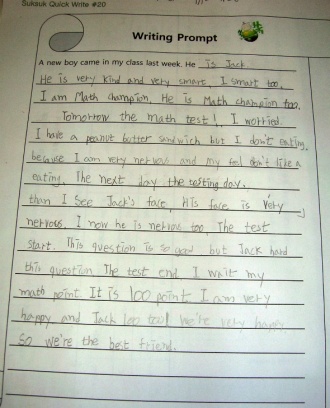 Suksuk Quick Write #20
Writing Prompt
A new boy came in my class last week. He is Jack
He is very kind and very smart. I smart too.
I am Math champion. He is Math champion too.
Tomorrow the math test! I worried.
I have a peanut botter sandwich but I don't eating.
because I am very nervous and my feel don't like a
eating. The next day the testing day.
than I see Jack's face, His face is very
nervous. I now he is nervous too The test
start. This question is so good but Jack hard
this question The test end I wait my
math point. It is 100 point I am very
happy and Jack 100 too! We're very happy
So we're the best friend.